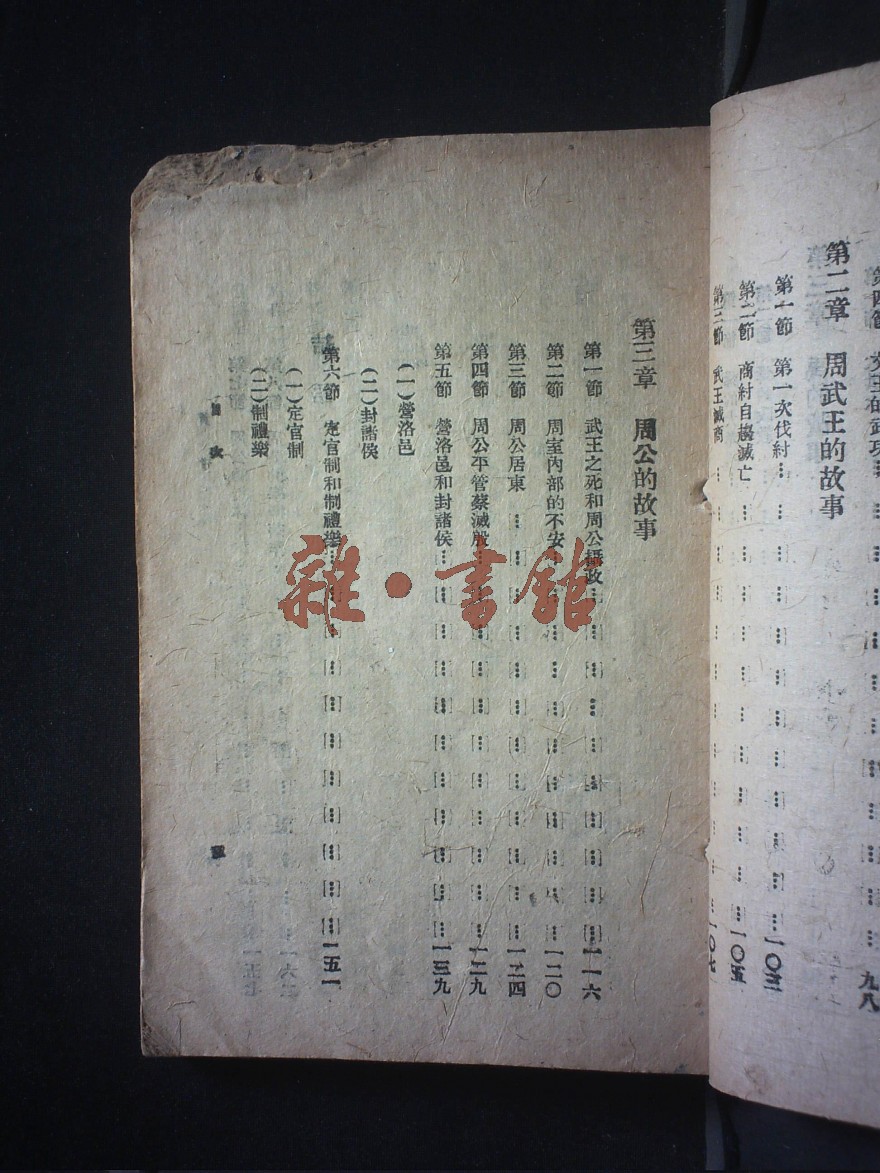 第四節
第二章 周武王的故事
第一節 第一次伐紂 一〇三
第二節 商紂自趨滅亡 一〇五
第三節 武王滅商 一〇七
九八
第三章 周公的故事
第一節 武王之死和周公攝政 一一六
第二節 周室內部的不安 一二〇
第三節 周公居東 一二四
第四節 周公平管蔡滅殷 一二九
第五節 營洛邑和封諸侯 一三九
（一）營洛邑
（二）封諸侯
第六節 定官制和制禮樂 一五一
（一）定官制
（二）制禮樂
目次
雜·書館